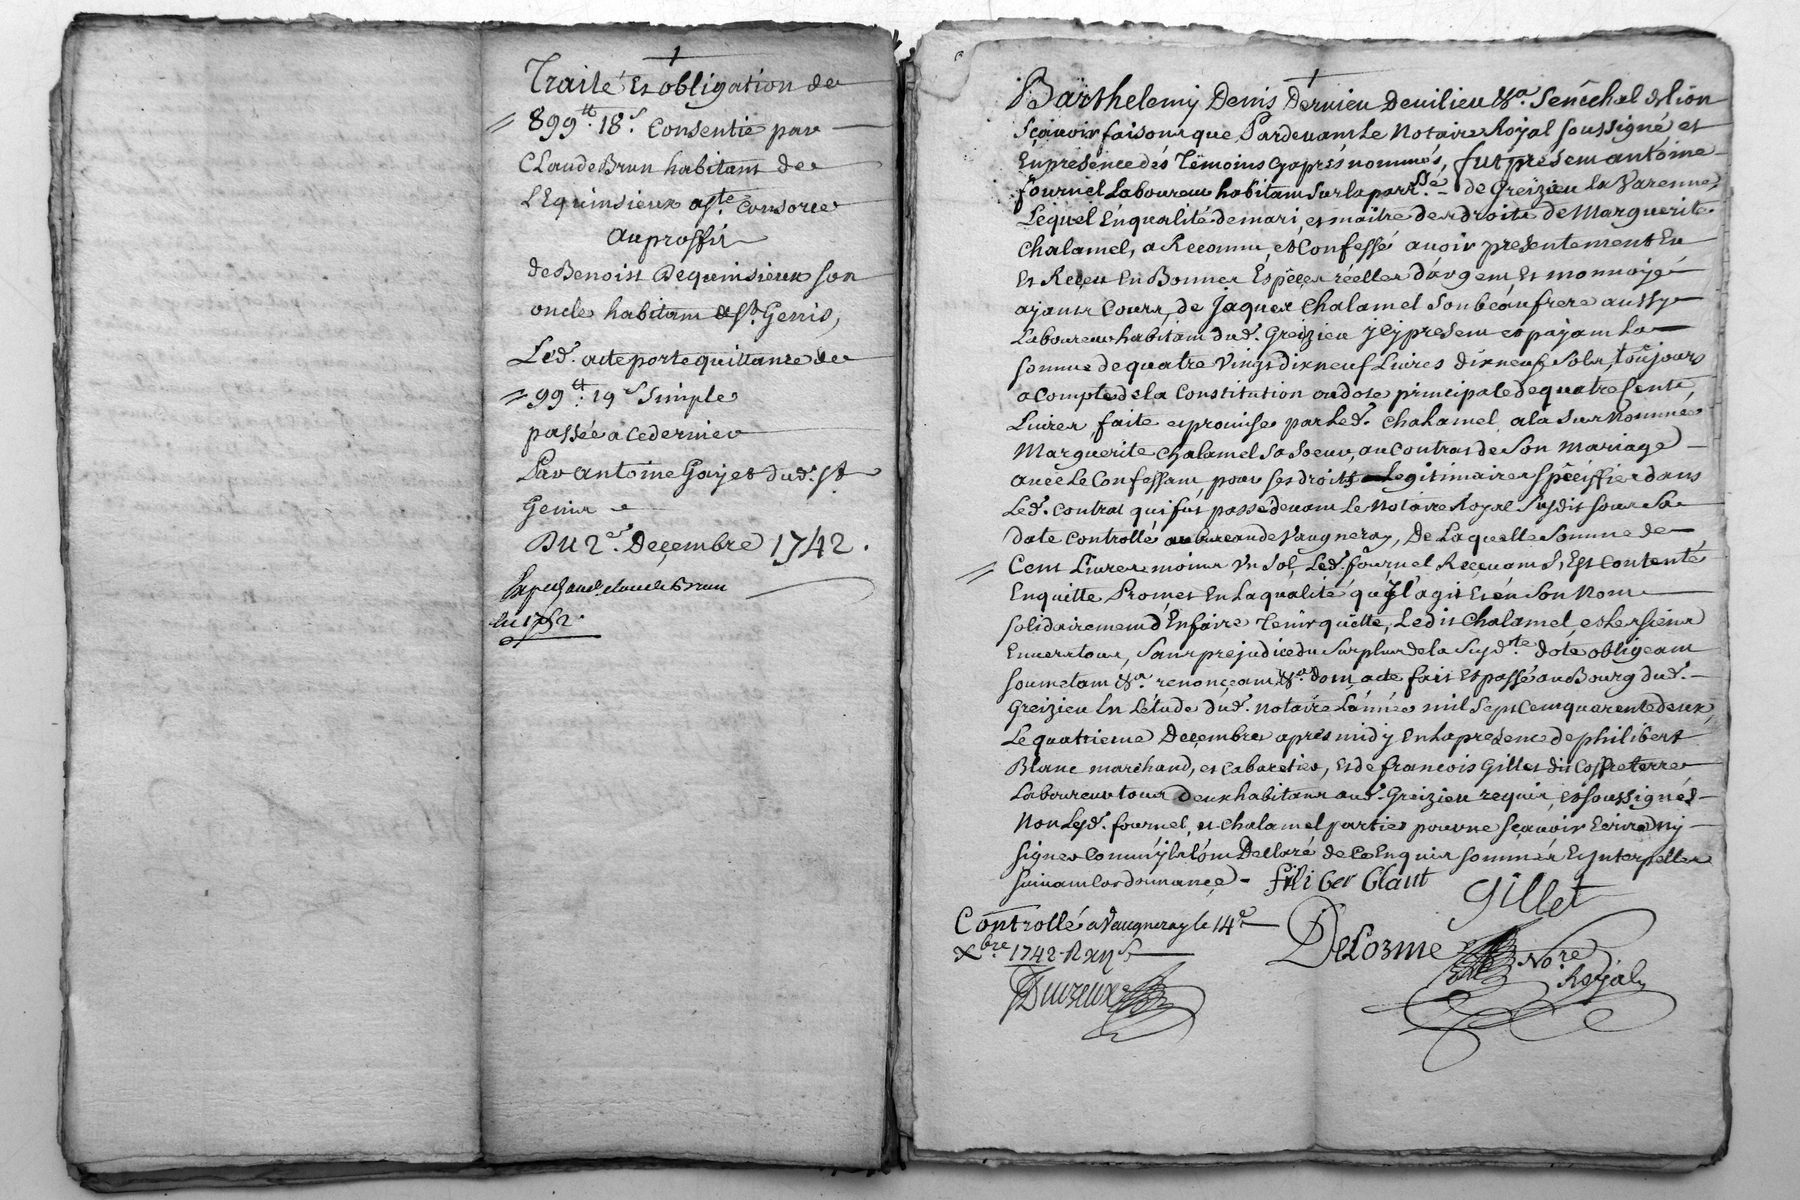 Traité Et obligation de
899.tt 18.s Consentie par
Claude Brun habitant de
L'Equinsieux aste. Consorce
Au proffit
de Benoist Dequinsieux son
oncle habitant a St. Genis,
Led. acte porte quittance de
99.tt 19 s Simple
passée a ce dernier
Par antoine Goyet dud. St
Genis
Du 2e. Deçembre 1742.
Exped. aud. claude Brun
en 1752.
Barthelemy Denis Dervieu Devilieu &a. Senêchal de lion
Sçavoir faisons que Pardevant Le Notaire Royal soussigné et
En presence dés Témoins cy aprés nommés, fut présent antoine
fournel Laboureur habitant Sur la parrsse de Greizieu la Varenne,
Lequel En qualité de mari, et maitre des droits de Marguerite
Chalamel, a Reconnu, et Confessé avoir presentement Eu
Et Reçeu En Bonnes Espêçes réelles d'argent, Et monnoyé
ayants Cours, de Jaques Chalamel Son beau frere aussy
Laboureur habitant dud. Greizieu Jcy present et payant La
Somme de quatre Vingt dixneuf Livres dixneuf Sols, toujours
a Compte de la Constitution ou dote principale de quatre Cents
Livres, faite et promise par Led. Chalamel, a la Surnommée
Marguerite Chalamel Sa Soeur, au Contrat de Son Mariage
avec Le Confessant, pour Ses droits Legitimaires Spéciffiés dans
Led. Contrat qui fut passé devant Le Notaire Royal Susdit Sous Sa
Date Controllé au bureau de Vaugneray, De Laquelle Somme de
Cent Livres moins Vn Sol, Led. fournel Reçevant S'Est Contenté
En quitte Promet En La qualité qu'Jl agit Et en Son Nom
Solidairement d'En faire Tenir quitte, Ledit Chalamel, et Les siens
Envers tous, Sans préjudice du Surplus de la Susdte. dote obligeant
Soumetant &a. renonçeant &a. dont acte fait Et passé au Bourg dud.
Greizieu En L'étude dud. Notaire L'année mil Sept Cent quarente deux,
Le quatrieme Deçembre aprés midy En la presençe de philibert
Blanc marchand, et Cabaretier, Et de françois Gillet dit Coffreterre
Laboureur tous deux habitans aud. Greizieu requis, et soussignés
Non Lesd. fournel, et Chalamel parties pour ne Sçavoir Ecrire, ny
signer Comm'jls l'ont Declaré de Ce Enquis Sommés Et Jnterpellés
Suivant L'ordonnançe - filiber blant Gillet
Controllé a Vaugneray le 14e
Xbre 1742. R
DeLorme Nore
Royal